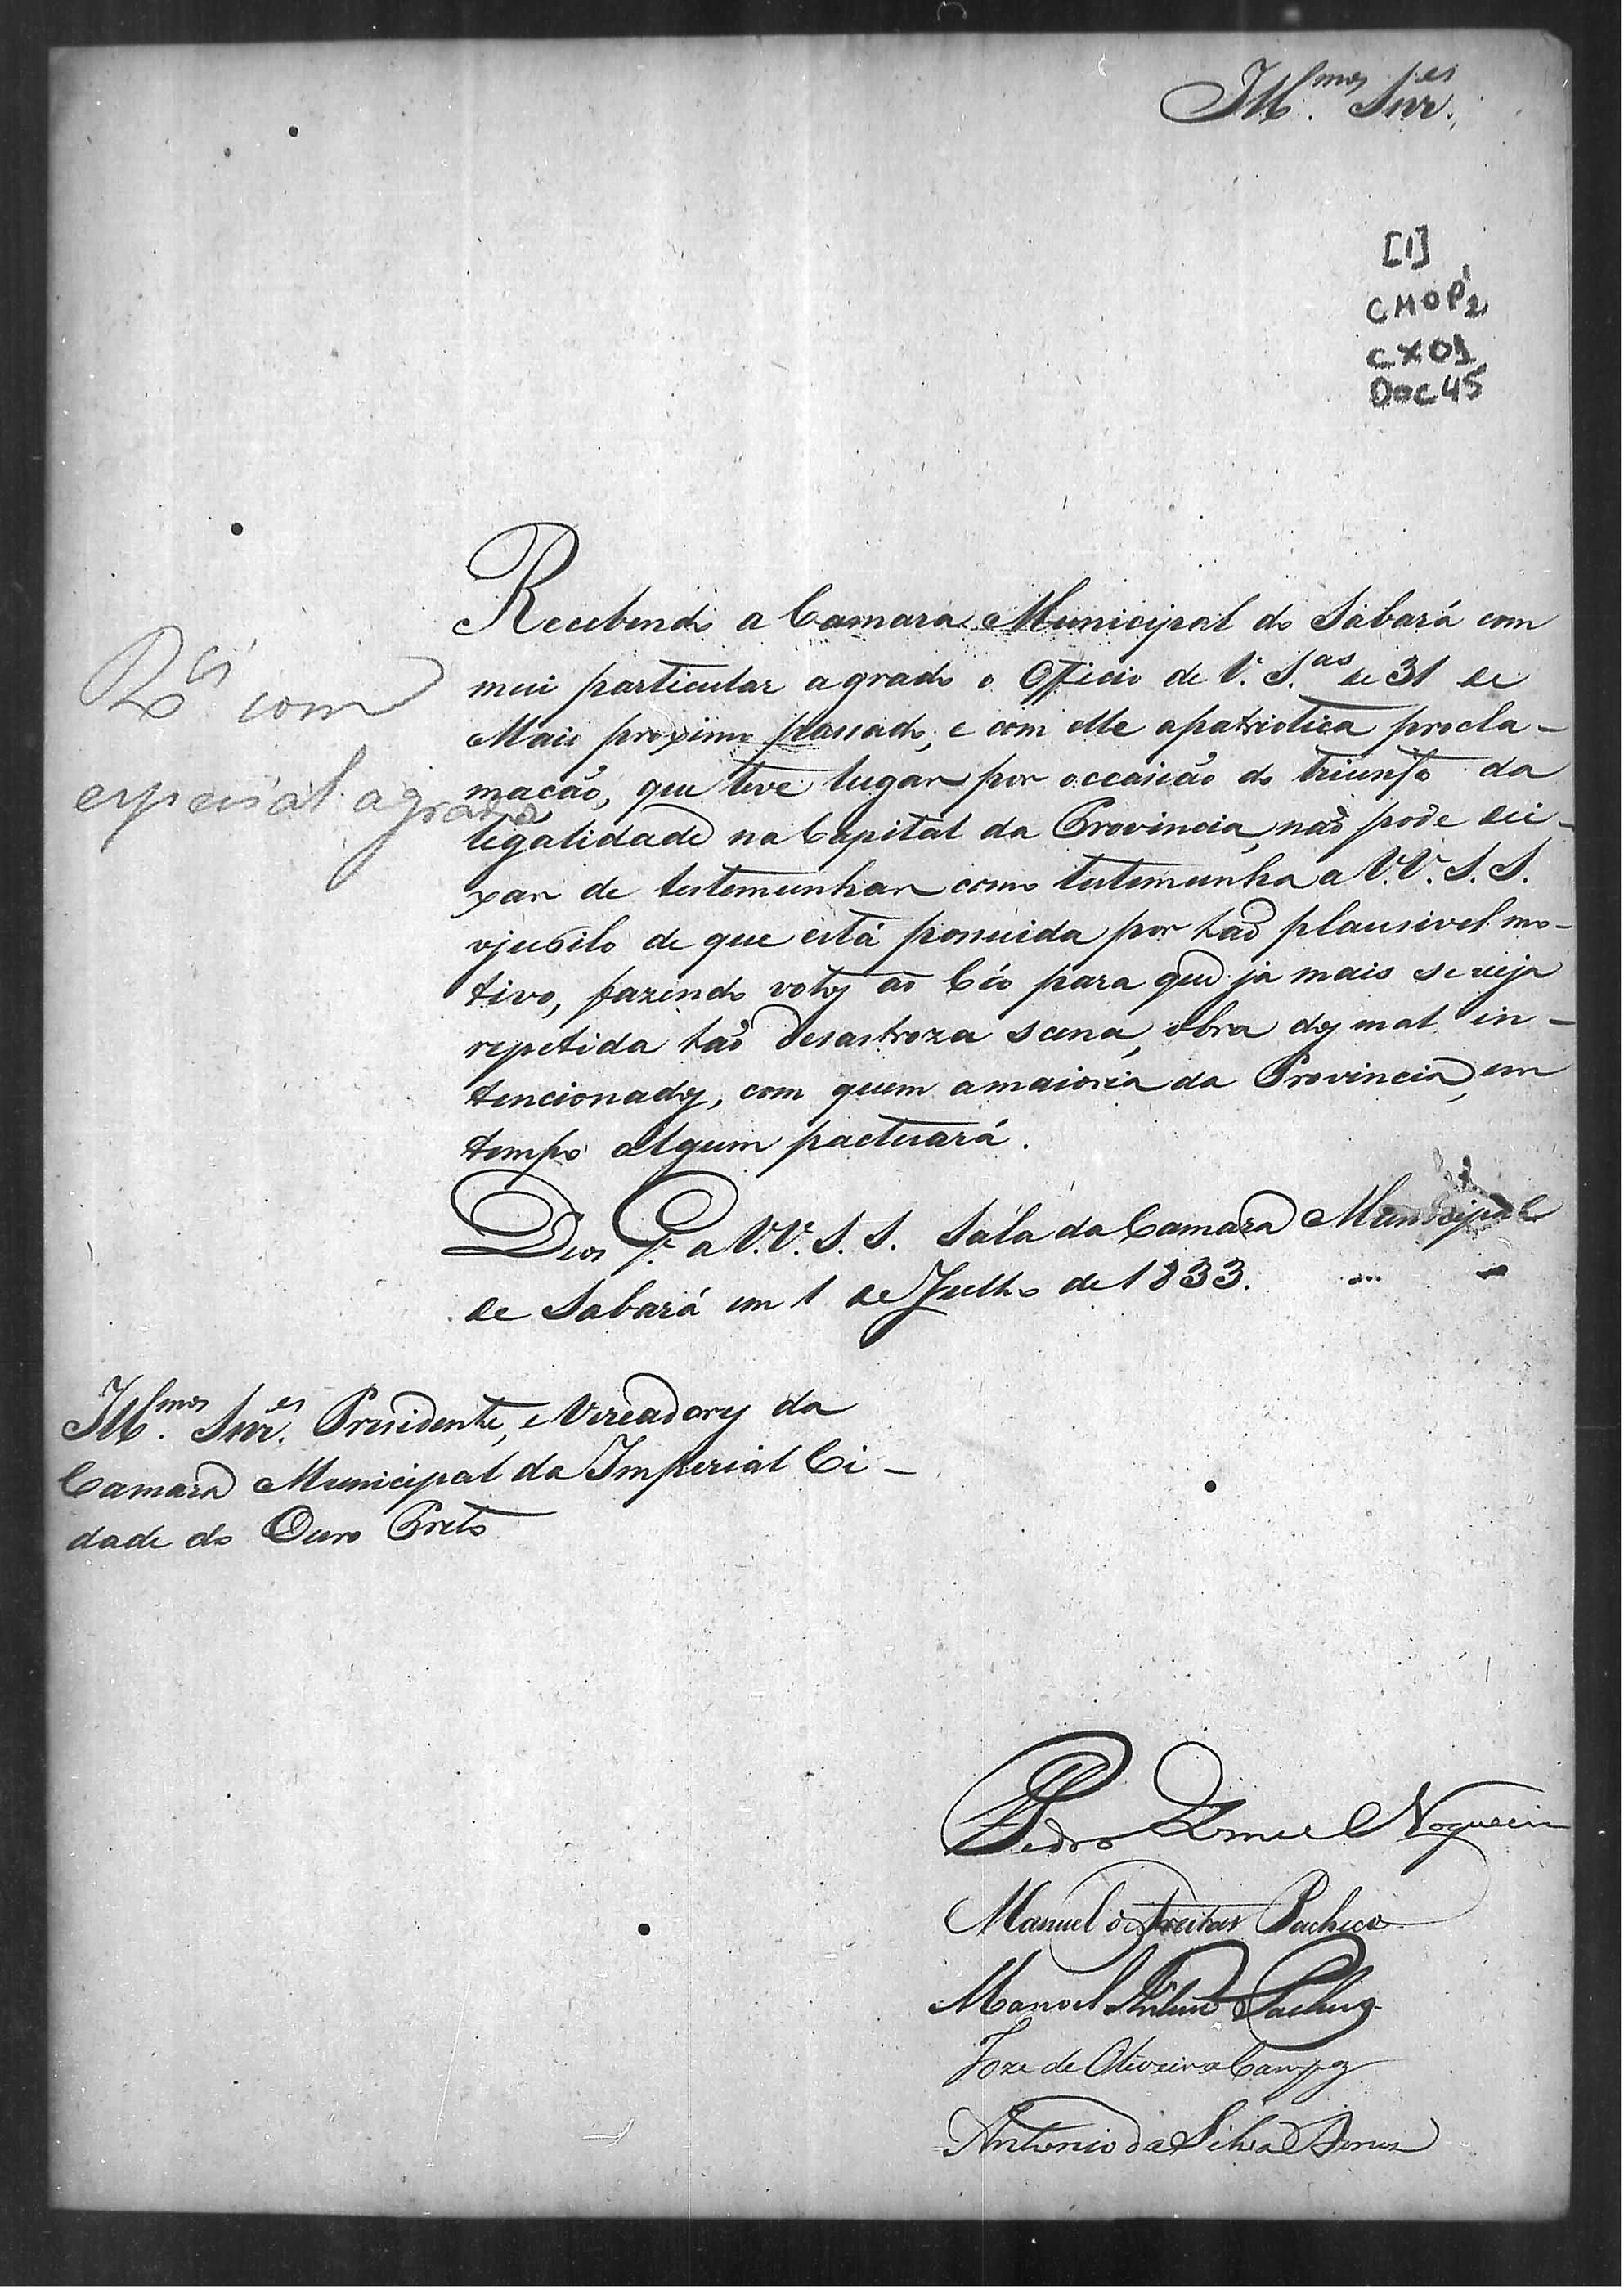 Ill.mos Snr.es
[1]
CMOP2
CX01
Doc 45
Recebendo a Camara Municipal do Sabará com
mui particular agrado o Officio de V. S.as de 31 de
Maio proximo passado, e com elle apatriotica procla-
macão, que teve lugar por occasião do triunfo da
legalidade na Capital da Provincia, não póde dei-
xar de testemunhar como testemunha a V.V. S. S.
ojubilo de que está possuida por tão plausivel mo-
tivo, fazendo votos ao Céo para que ja mais se veja
repetida tão desastroza scena, obra dos mal in-
tencionados, com quem amaioria da Provincia, em
tempo algum pactuará.
Deos G.e a V.V. S. S. Sala da Camara Municipal
de Sabará em 1 de Julho de 1833.
com
especial agrado
Ill.mos Snr.es Presidente, e Vereadores da
Camara Municipal da Imperial Ci-
dade do Ouro Preto
Pedro Nogueira
Manuel de Freitas Pacheco
Manoel Pacheco
Joze de Oliveira Campos
Antonio da Silva